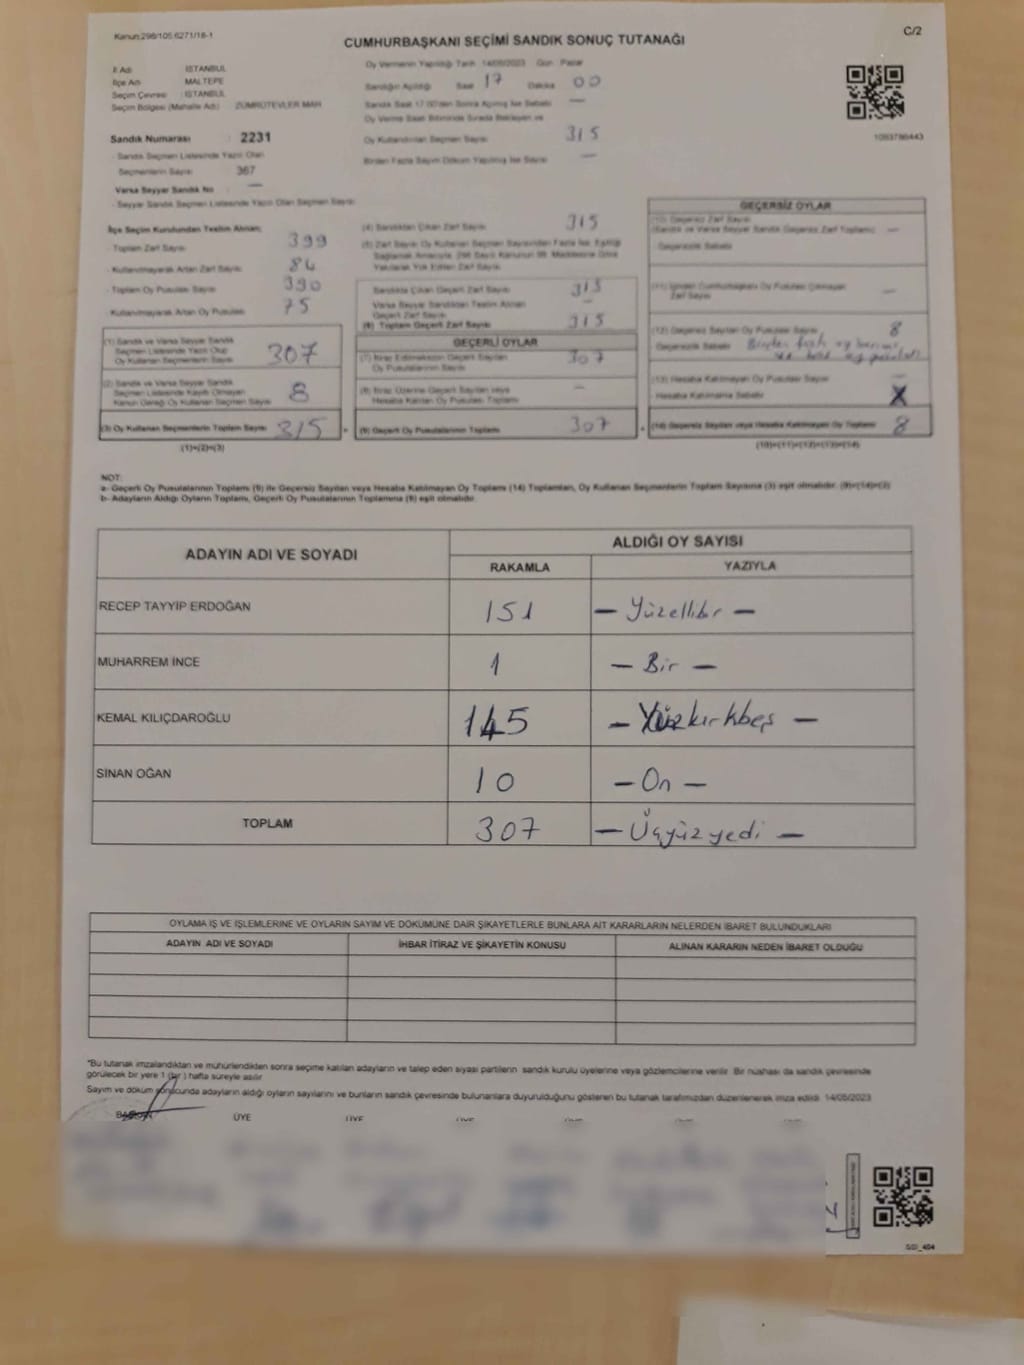 Kanun:298/105 6271/18-1
C/2
CUMHURBAŞKANI SEÇİMİ SANDIK SONUÇ TUTANAĞI
İl Adı : İSTANBUL
İlçe Adı : MALTEPE
Seçim Çevresi : İSTANBUL
Seçim Bölgesi (Mahalle Adı) : ZÜMRÜTEVLER MAH
Sandık Numarası : 2231
- Sandık Seçmen Listesinde Yazılı Olan
Seçmenlerin Sayısı : 367
Varsa Seyyar Sandık No —
- Seyyar Sandık Seçmen Listesinde Yazılı Olan Seçmen Sayısı
Oy Vermenin Yapıldığı Tarih 14/05/2023 Gün Pazar
Sandığın Açıldığı Saat 17 Dakika 00
Sandık Saat 17:00'den Sonra Açılmış İse Sebebi —
Oy Verme Saati Bitiminde Sırada Bekleyen ve
Oy Kullandırılan Seçmen Sayısı 315
Birden Fazla Sayım Döküm Yapılmış İse Sayısı —
1093786443
İlçe Seçim Kurulundan Teslim Alınan;
- Toplam Zarf Sayısı 399
- Kullanılmayarak Artan Zarf Sayısı 84
- Toplam Oy Pusulası Sayısı 390
- Kullanılmayarak Artan Oy Pusulası 75
(1) Sandık ve Varsa Seyyar Sandık
Seçmen Listesinde Yazılı Olup
Oy Kullanan Seçmenlerin Sayısı 307
(2) Sandık ve Varsa Seyyar Sandık
Seçmen Listesinde Kayıtlı Olmayan
Kanun Gereği Oy Kullanan Seçmen Sayısı 8
(3) Oy Kullanan Seçmenlerin Toplam Sayısı 315
(1)+(2)=(3)
(4) Sandıktan Çıkan Zarf Sayısı 315
(5) Zarf Sayısı Oy Kullanan Seçmen Sayısından Fazla İse, Eşitliği
Sağlamak Amacıyla, 298 Sayılı Kanunun 98. Maddesine Göre
Yakılarak Yok Edilen Zarf Sayısı
Sandıkta Çıkan Geçerli Zarf Sayısı 315
Varsa Seyyar Sandıktan Teslim Alınan
Geçerli Zarf Sayısı —
(6) Toplam Geçerli Zarf Sayısı 315
GEÇERLİ OYLAR
(7) İtiraz Edilmeksizin Geçerli Sayılan
Oy Pusulalarının Sayısı 307
(8) İtiraz Üzerine Geçerli Sayılan veya
Hesaba Katılan Oy Pusulası Toplamı —
(9) Geçerli Oy Pusulalarının Toplamı 307
GEÇERSİZ OYLAR
(10) Geçersiz Zarf Sayısı
(Sandık ve Varsa Seyyar Sandık Geçersiz Zarf Toplamı) —
Geçersizlik Sebebi
(11) İçinden Cumhurbaşkanı Oy Pusulası Çıkmayan
Zarf Sayısı —
(12) Geçersiz Sayılan Oy Pusulası Sayısı 8
Geçersizlik Sebebi Birden fazla oy
ve
(13) Hesaba Katılmayan Oy Pusulası Sayısı —
Hesaba Katılmama Sebebi X
(14) Geçersiz Sayılan veya Hesaba Katılmayan Oy Toplamı 8
(10)+(11)+(12)+(13)=(14)
NOT:
a- Geçerli Oy Pusulalarının Toplamı (9) ile Geçersiz Sayılan veya Hesaba Katılmayan Oy Toplamı (14) Toplamları, Oy Kullanan Seçmenlerin Toplam Sayısına (3) eşit olmalıdır. (9)+(14)=(3)
b- Adayların Aldığı Oyların Toplamı, Geçerli Oy Pusulalarının Toplamına (9) eşit olmalıdır.
ADAYIN ADI VE SOYADI
ALDIĞI OY SAYISI
RAKAMLA YAZIYLA
RECEP TAYYİP ERDOĞAN 151 — Yüzellibir —
MUHARREM İNCE 1 — Bir —
KEMAL KILIÇDAROĞLU 145 — Yüzkırkbeş —
SİNAN OĞAN 10 — On —
TOPLAM 307 — Üçyüzyedi —
OYLAMA İŞ VE İŞLEMLERİNE VE OYLARIN SAYIM VE DÖKÜMÜNE DAİR ŞİKAYETLERLE BUNLARA AİT KARARLARIN NELERDEN İBARET BULUNDUKLARI
ADAYIN ADI VE SOYADI İHBAR İTİRAZ VE ŞİKAYETİN KONUSU ALINAN KARARIN NEDEN İBARET OLDUĞU
*Bu tutanak imzalandıktan ve mühürlendikten sonra seçime katılan adayların ve talep eden siyasi partilerin sandık kurulu üyelerine veya gözlemcilerine verilir. Bir nüshası da sandık çevresinde
görülecek bir yere 1 (bir) hafta süreyle asılır
Sayım ve döküm sonucunda adayların aldığı oyların sayılarını ve bunların sandık çevresinde bulunanlara duyurulduğunu gösteren bu tutanak tarafımızdan düzenlenerek imza edildi. 14/05/2023
BAŞKAN ÜYE ÜYE